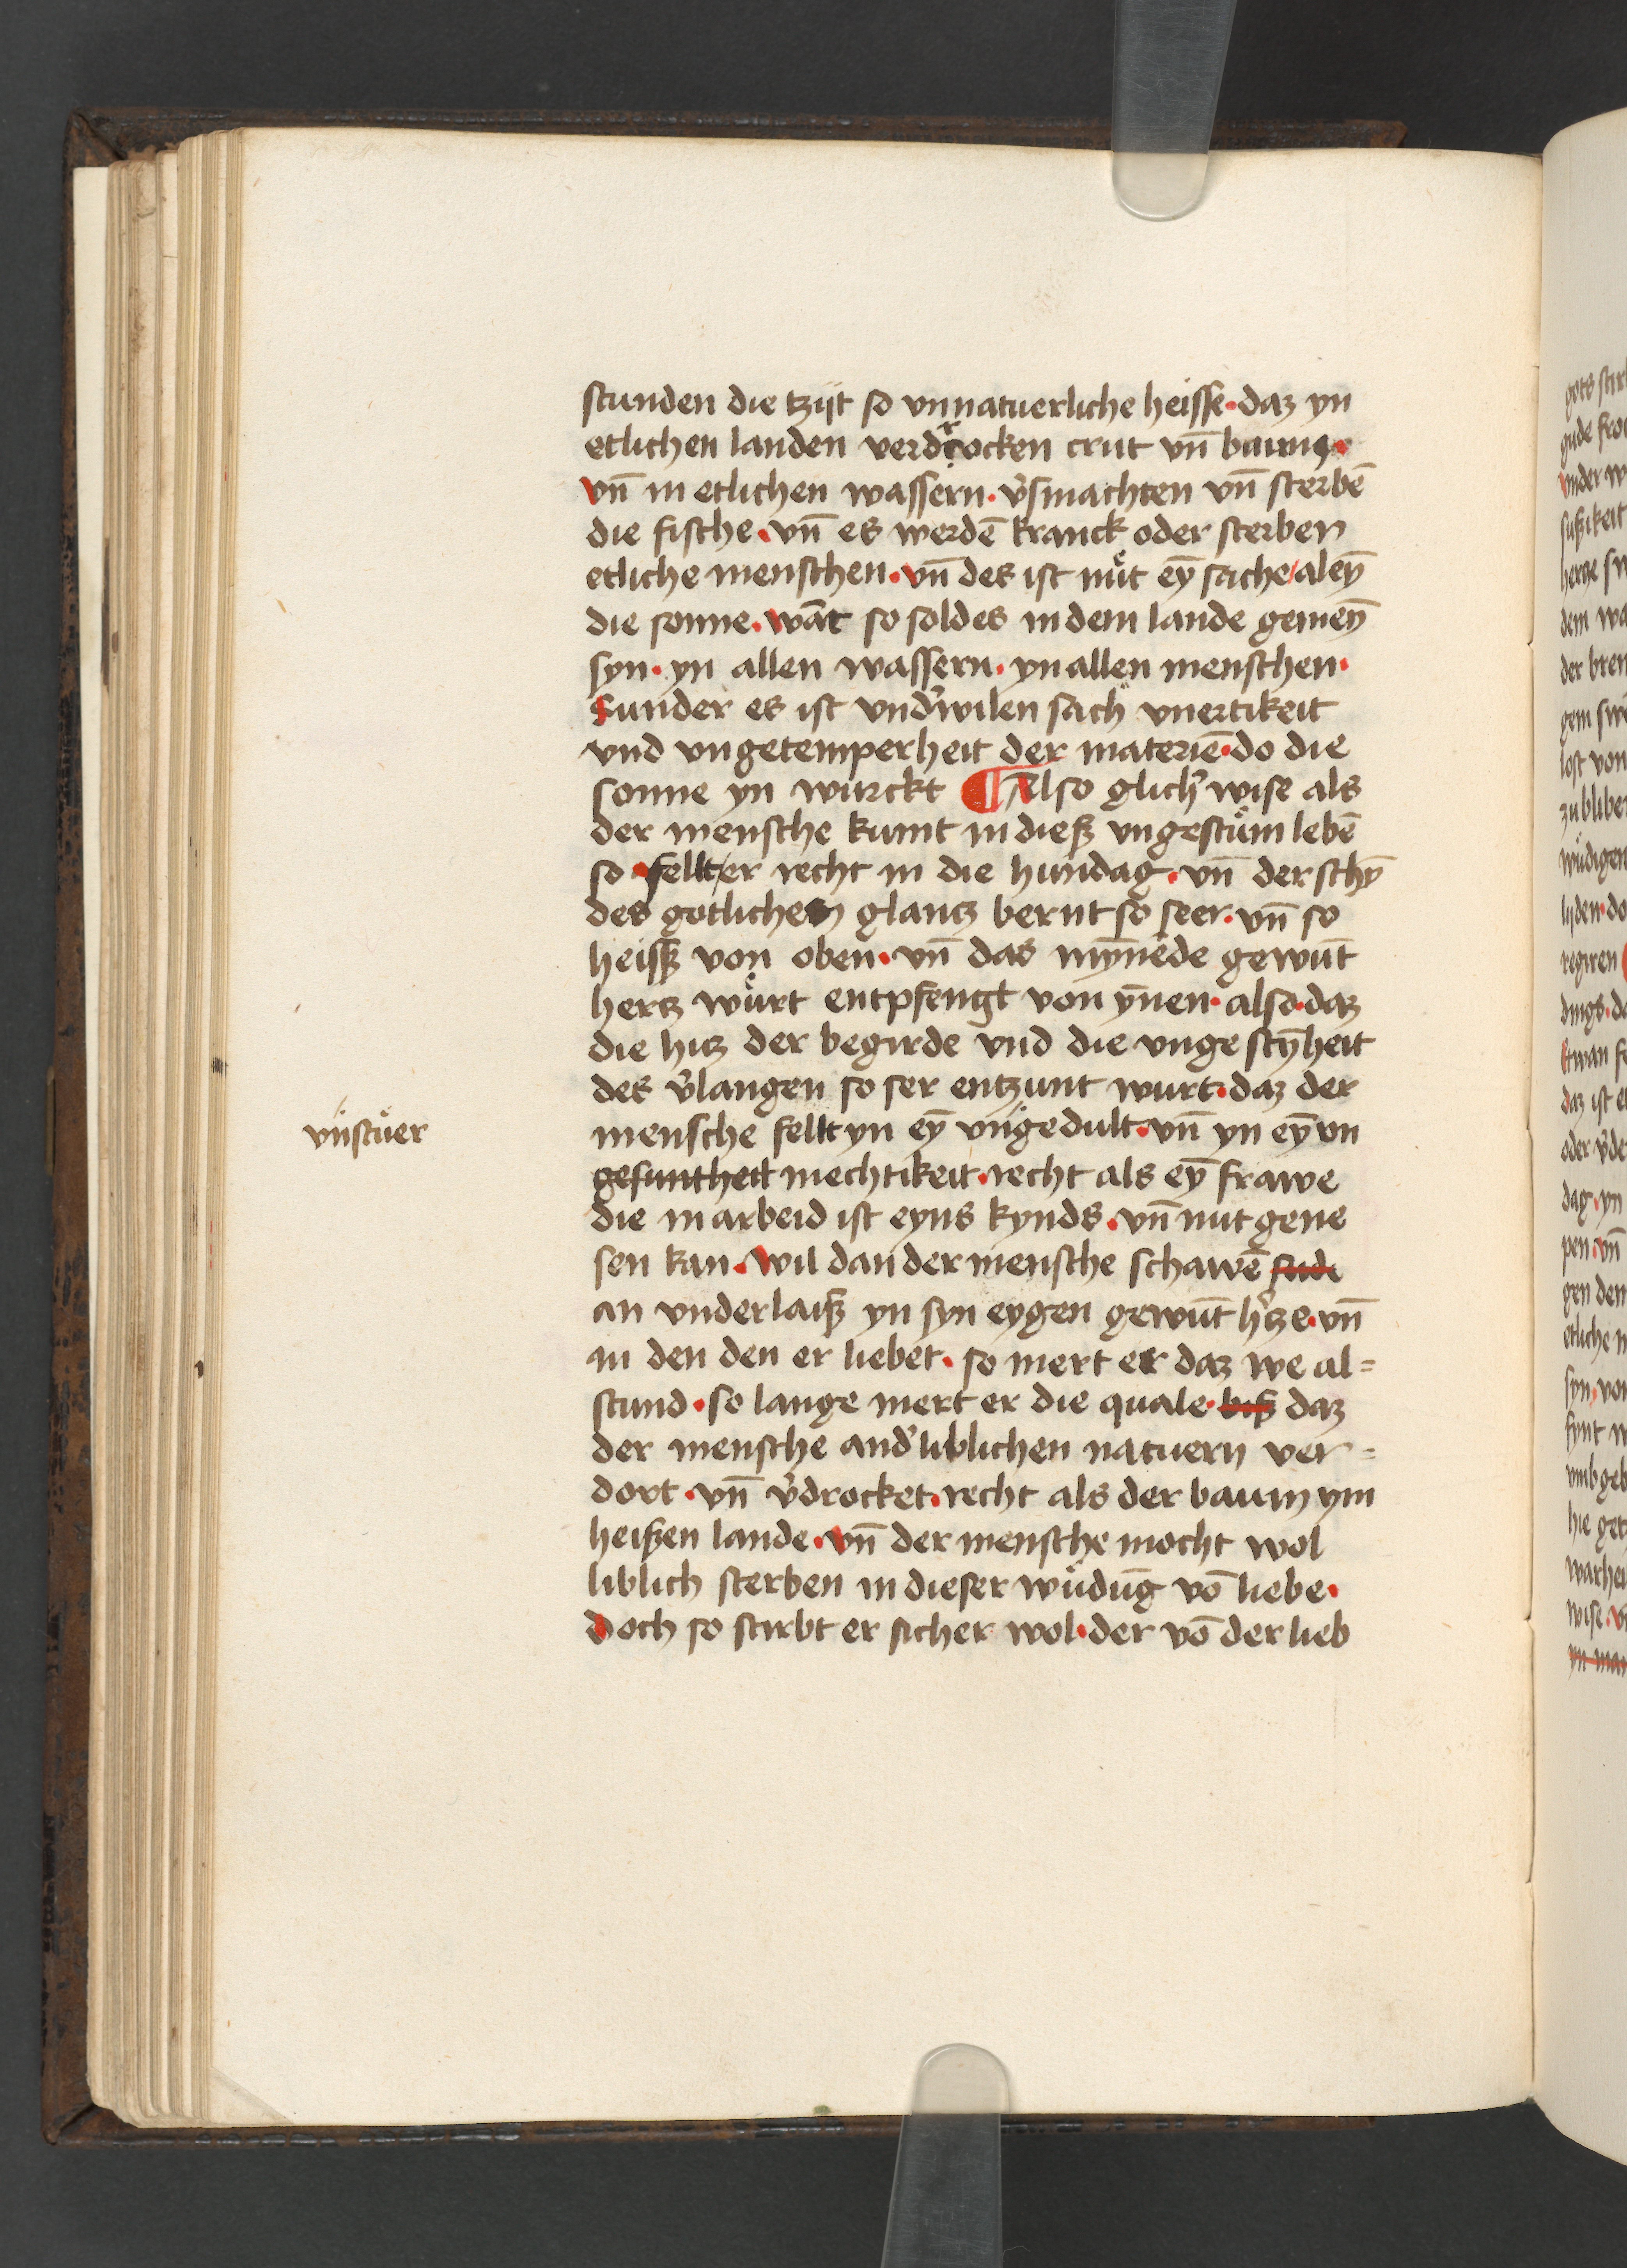 stunden die tzijt so vnnatuerliche heisse · daz yn
etlichen landen verdrocken crut vn̄ baum ·
vn̄ in etlichen wassern · v̓smachten vn̄ sterbē
die fische · vn̄ es werdē kranck oder sterben
etliche menschen · vn̄ des ist nuͤt eȳ sache / aleȳ
die sonne · wāt so soldes in dem lande gemeȳ
syn · yn allen wassern · yn allen menschen ·
Sunder es ist vnd̓wilen sach vnertikeit
vnd vngetemperheit der materiē · do die
sonne yn wurckt ¶ Also glich̓ wise als
der mensche kumt in dieß vngestuͤm lebē
so · fellt / er recht in die hundag · vn̄ der schȳ
des gotlichen glantz bernt so seer · vn̄ so
heiß von oben · vn̄ das mȳnēde gewūt
hertz wuͤrt entpfengt von ȳnen · also · daz
die hitz der begirde vnd die vngestȳheit
des v̓langen so ser entzunt wurt · daz der
vnstuͤer
mensche fellt yn eȳ vngedult · vn̄ yn eȳ vn
gesuntheit mechtikeit · recht als eȳ frawe
die in arbeid ist eyns kynds · vn̄ nut gene
sen kan · wil dan der mensche schawē
an vnderlaiß yn syn eygen gewūt h̓tze · vn̄
in den den er liebet · so mert er daz we al=
stund · so lange mert er die quale · biß daz
der mensche and̓ liblichen natuern ver=
dort · vn̄ v̓drocket · recht als der baum ym
heißen lande · vn̄ der mensche mocht wol
liblich sterben in dieser wuͤdūg vō liebe ·
doch so stirbt er sicher wol · der vō der lieb